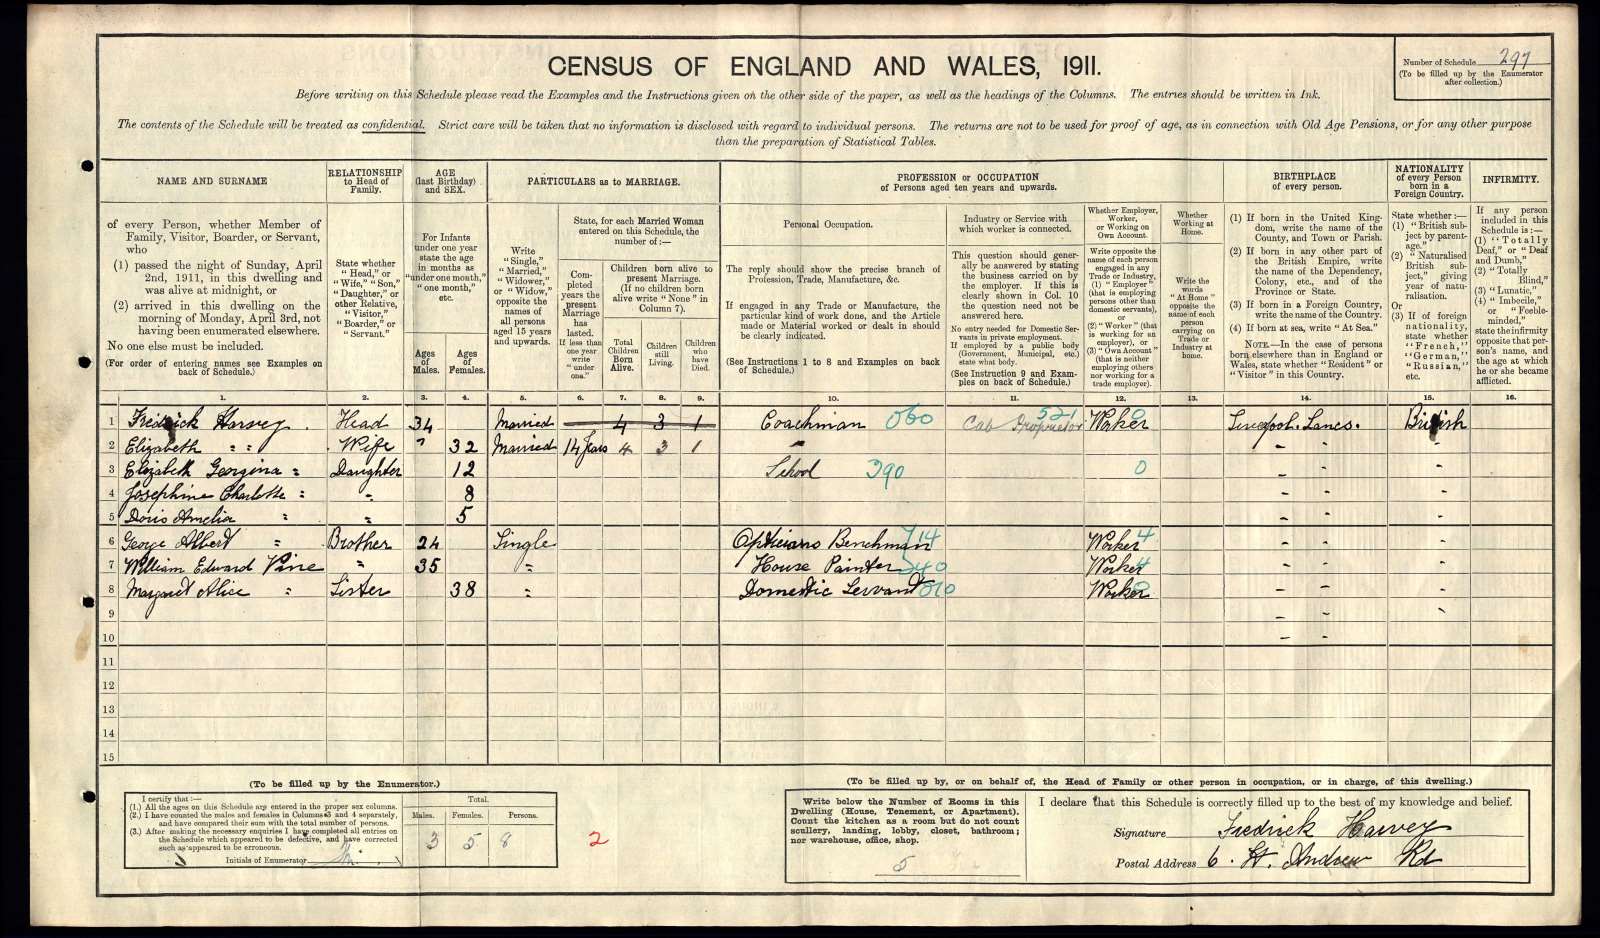 Number of Schedule 297
(To be filled up by the Enumerator after collection.)
CENSUS OF ENGLAND AND WALES, 1911.
Before writing on this Schedule please read the Examples and the Instructions given on the other side of the paper, as well as the headings of the Columns. The entries should be written in Ink.
The contents of the Schedule will be treated as confidential. Strict care will be taken that no information is disclosed with regard to individual persons. The returns are not to be used for proof of age, as in connection with Old Age Pensions, or for any other purpose
than the preparation of Statistical Tables.
NAME AND SURNAME
of every Person, whether Member of
Family, Visitor, Boarder, or Servant,
who
(1) passed the night of Sunday, April
2nd, 1911, in this dwelling and
was alive at midnight, or
(2) arrived in this dwelling on the
morning of Monday, April 3rd, not
having been enumerated elsewhere.
No one else must be included.
(For order of entering names see Examples on
back of Schedule.)
RELATIONSHIP
to Head of
Family.
State whether
"Head," or
"Wife," "Son,"
"Daughter," or
other Relative,
"Visitor,"
"Boarder," or
"Servant."
AGE
(last Birthday)
and SEX.
For Infants
under one year
state the age
in months as
"under one month,"
"one month,"
etc.
Ages of Males.
Ages of Females.
PARTICULARS as to MARRIAGE.
Write
"Single,"
"Married,"
"Widower,"
or "Widow,"
opposite the
names of
all persons
aged 15 years
and upwards.
State, for each Married Woman
entered on this Schedule, the
number of:—
Completed
years the
present
Marriage
has
lasted.
If less than
one year
write
"under
one."
Children born alive to
present Marriage.
(If no children born
alive write "None" in
Column 7).
Total Children Born Alive.
Children still Living.
Children who have Died.
PROFESSION or OCCUPATION
of Persons aged ten years and upwards.
Personal Occupation.
The reply should show the precise branch of
Profession, Trade, Manufacture, &c.
If engaged in any Trade or Manufacture, the
particular kind of work done, and the Article
made or Material worked or dealt in should
be clearly indicated.
(See Instructions 1 to 8 and Examples on back
of Schedule.)
Industry or Service with
which worker is connected.
This question should generally
be answered by stating
the business carried on by
the employer. If this is
clearly shown in Col. 10
the question need not be
answered here.
No entry needed for Domestic Servants
in private employment.
If employed by a public body
(Government, Municipal, etc.)
state what body.
(See Instruction 9 and Examples
on back of Schedule.)
Whether Employer,
Worker,
or Working on
Own Account.
Write opposite the
name of each person
engaged in any
Trade or Industry,
(1) "Employer"
(that is employing
persons other than
domestic servants),
or
(2) "Worker" (that
is working for an
employer), or
(3) "Own Account"
(that is neither
employing others
nor working for a
trade employer).
Whether
Working at
Home.
Write the
words
"At Home"
opposite the
name of each
person
carrying on
Trade or
Industry at
home.
BIRTHPLACE
of every person.
(1) If born in the United Kingdom,
write the name of the
County, and Town or Parish.
(2) If born in any other part of
the British Empire, write
the name of the Dependency,
Colony, etc., and of the
Province or State.
(3) If born in a Foreign Country,
write the name of the Country.
(4) If born at sea, write "At Sea."
NOTE.—In the case of persons
born elsewhere than in England or
Wales, state whether "Resident" or
"Visitor" in this Country.
NATIONALITY
of every Person
born in a
Foreign Country.
State whether:—
(1) "British subject
by parentage."
(2) "Naturalised
British subject,"
giving
year of naturalisation.
Or
(3) If of foreign
nationality,
state whether
"French,"
"German,"
"Russian,"
etc.
INFIRMITY.
If any person
included in this
Schedule is:—
(1) "Totally
Deaf," or "Deaf
and Dumb,"
(2) "Totally
Blind,"
(3) "Lunatic,"
(4) "Imbecile,"
or "Feeble-minded,"
state the infirmity
opposite that person's
name, and
the age at which
he or she became
afflicted.
1. 2. 3. 4. 5. 6. 7. 8. 9. 10. 11. 12. 13. 14. 15. 16.
1 Fredrick Harvey Head 34 Married 4 3 1 Coachman 060 Cab Proprietor 521 Worker 0 Liverpool. Lancs. British
2 Elizabeth " " Wife " 32 Married 14 Years 4 3 1 " " " "
3 Elizabeth Georgina " Daughter 12 School 390 0 " " "
4 Josephine Charlotte " " 8 " " "
5 Doris Amelia " " 5 " " "
6 George Albert " Brother 24 Single Opticians Benchman 714 Worker 4 " " "
7 William Edward Vine " 35 " House Painter 540 Worker 4 " " "
8 Margaret Alice " Sister 38 " Domestic Servant 010 Worker 0 " " "
9 " " "
10 " "
11
12
13
14
15
(To be filled up by the Enumerator.)
I certify that:—
(1.) All the ages on this Schedule are entered in the proper sex columns.
(2.) I have counted the males and females in Columns 3 and 4 separately,
and have compared their sum with the total number of persons.
(3.) After making the necessary enquiries I have completed all entries on
the Schedule which appeared to be defective, and have corrected
such as appeared to be erroneous.
Initials of Enumerator
Total.
Males. Females. Persons.
3 5 8
2
(To be filled up by, or on behalf of, the Head of Family or other person in occupation, or in charge, of this dwelling.)
Write below the Number of Rooms in this
Dwelling (House, Tenement, or Apartment).
Count the kitchen as a room but do not count
scullery, landing, lobby, closet, bathroom;
nor warehouse, office, shop.
5
I declare that this Schedule is correctly filled up to the best of my knowledge and belief.
Signature Fredrick Harvey
Postal Address 6. St. Andrew Rd